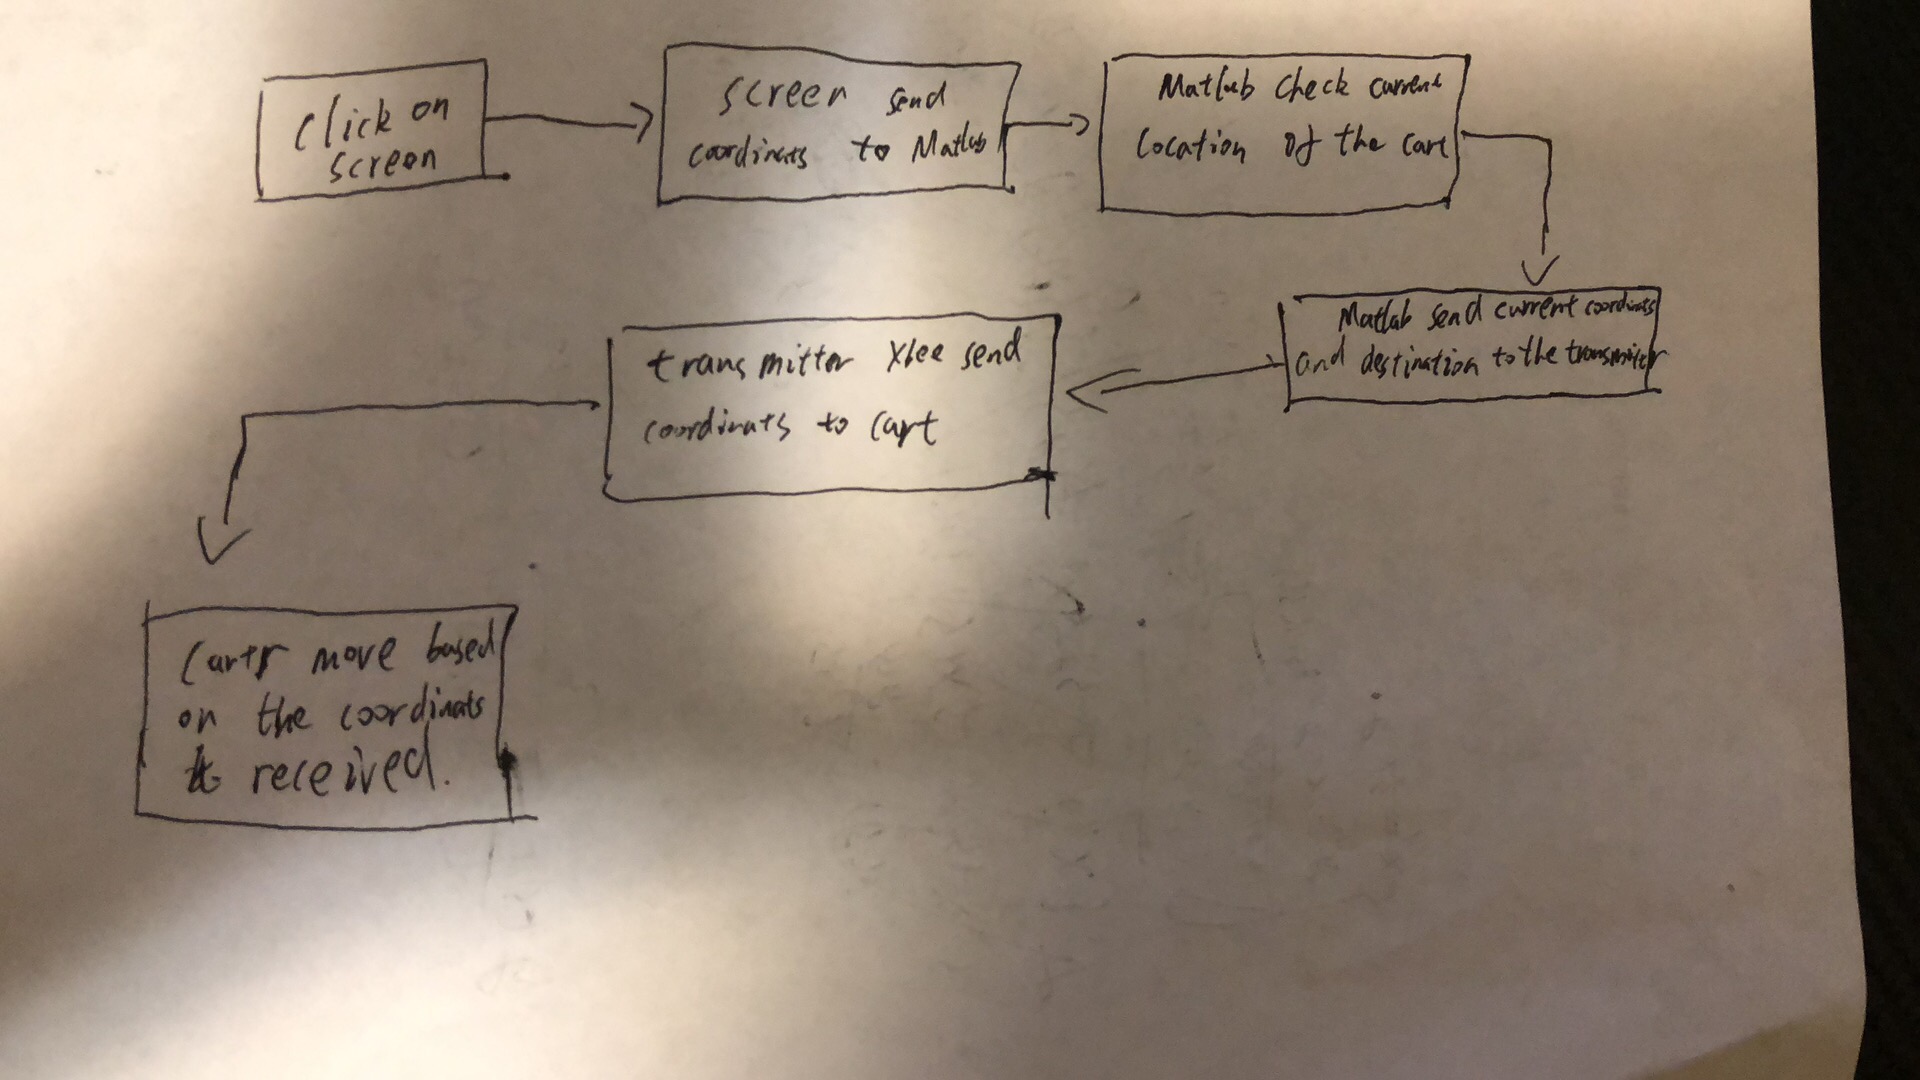 Click on
screen
screen send
coordinats to Matlab
Matlab check current
location of the cart
Matlab send current coordinats
and destination to the transmitter
transmitter Xbee send
coordinats to cart
move based
on the coordinats
it received.